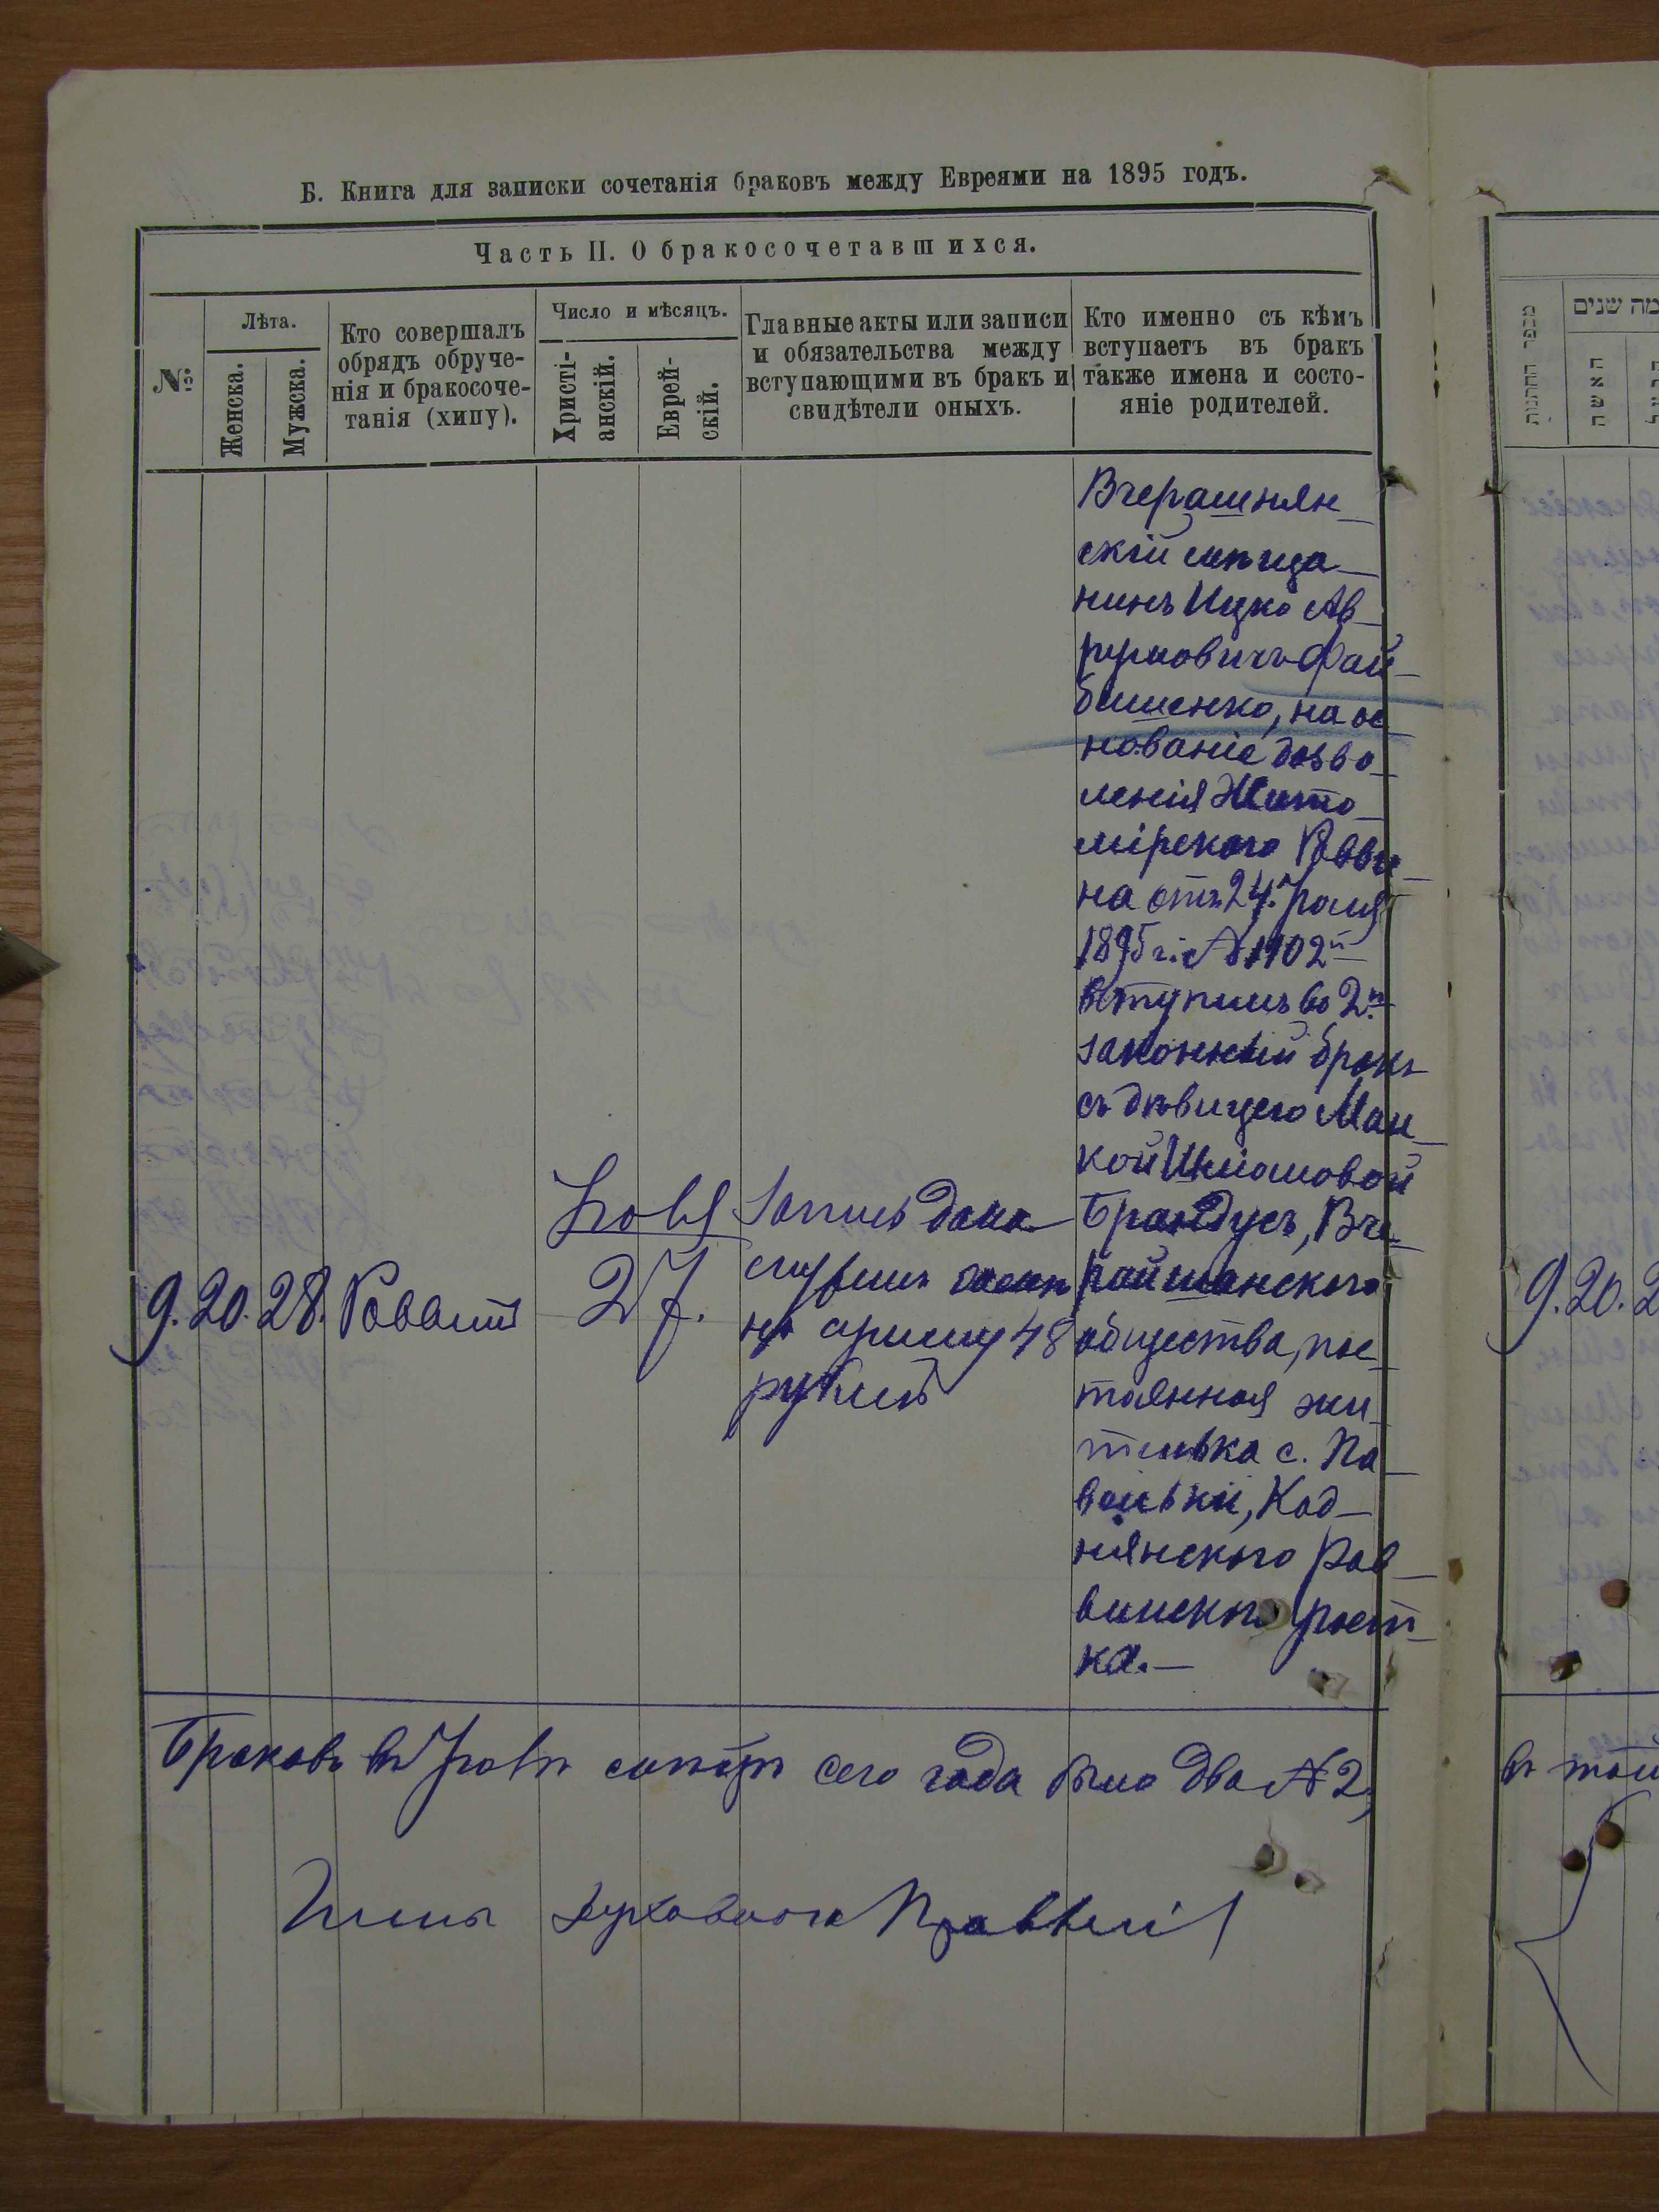 Б. Книга для записки сочетанія браковъ между Евреями на 1895 годъ.
Часть II. О бракосочетавшихся.
№
Лѣта.
Женска.
Мужска.
Кто совершалъ
обрядъ обруче-
нія и бракосоче-
танія (хипу).
Число и мѣсяцъ.
Христі-
анскій.
Еврей-
скій.
Главные акты или записи
и обязательства между
вступающими въ бракъ и
свидѣтели оныхъ.
Кто именно съ кѣмъ
вступаетъ въ бракъ
также имена и состо-
яніе родителей.
מספר החתונות
האשה
Вчерашнян
скій мѣща
нинъ Ицко Ав
румовичъ Фай
бишенко, на ос
нованіе дозво
ленія Жито
мірскаго Равви
на отъ 24
1895 г. № 1102
вступилъ во 2й
законный бракъ
съ дѣвицею Ман
кой Шліомовой
Брандусъ, Вче
райшанскаго
общества, пос
тоянная жи
телька с. Па
волъки, Код
нянскаго Рав
винскаго участ
ка.
9. 20. 28. Раввинъ
27.
Запись дана
на сумму 48
рублей
9. 20. 2
Браковъ въ сего года было два № 2,
въ
Члены Духовнаго Правленія